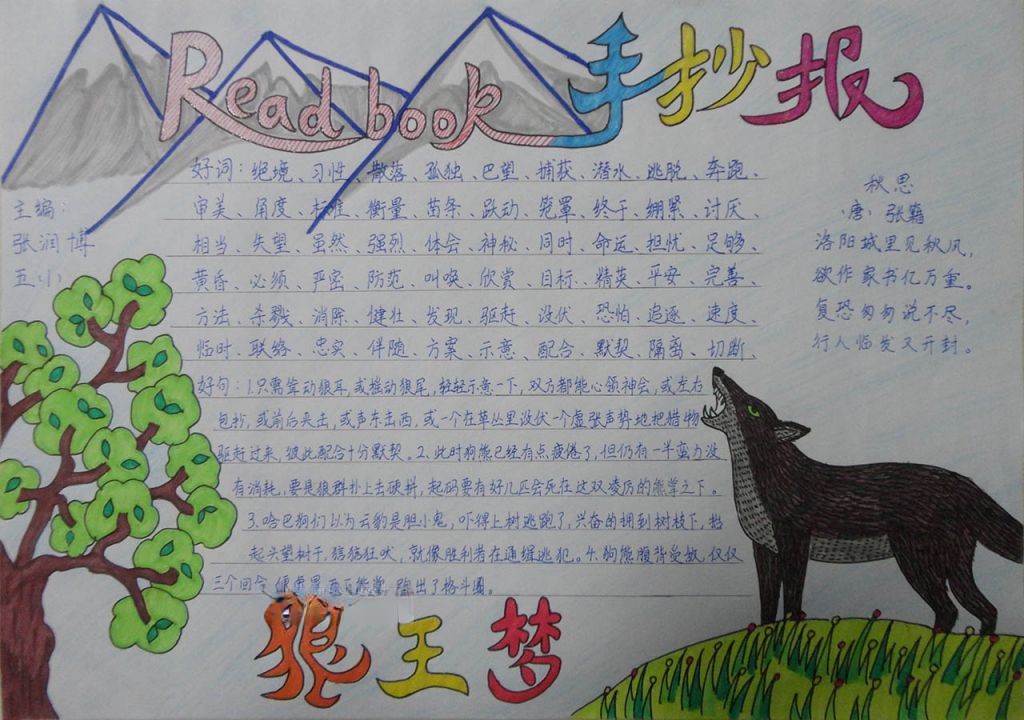 Read book 手抄报
主编：
张润博
五小
好词：绝境、习性、散落、孤独、巴望、捕获、潜水、逃脱、奔跑、
审美、角度、标准、衡量、苗条、跃动、笼罩、终于、绷紧、讨厌、
相当、失望、虽然、强烈、体会、神秘、同时、命运、担忧、足够、
黄昏、必须、严密、防范、叫唤、欣赏、目标、精英、平安、完善、
方法、杀戮、消除、健壮、发现、驱赶、没伏、恐怕、追逐、速度、
临时、联络、忠实、伴随、方案、示意、配合、默契、隔离、切断、
好句：1.只需耸动狼耳，或摇动狼尾，轻轻示意一下，双方都能心领神会，或左右
包抄，或前后夹击，或声东击西，或一个在草丛里没伏一个虚张声势地把猎物
驱赶过来，彼此配合十分默契。2、此时狗熊已经有点疲倦了，但仍有一半蛮力没
有消耗，要是狼群扑上去硬拼，起码要有好几匹会死在这双凌厉的熊掌之下。
3.哈巴狗们以为云豹是胆小鬼，吓得上树逃跑了，兴奋的拥到树枝下，抬
起头望树干，猖猖狂吠，就像胜利者在通缉逃犯。4.狗熊腹背受敌，仅仅
三个回合 出了格斗圈。
秋思
（唐）张籍
洛阳城里见秋风，
欲作家书亿万重。
复恐匆匆说不尽，
行人临发又开封。
狼王梦